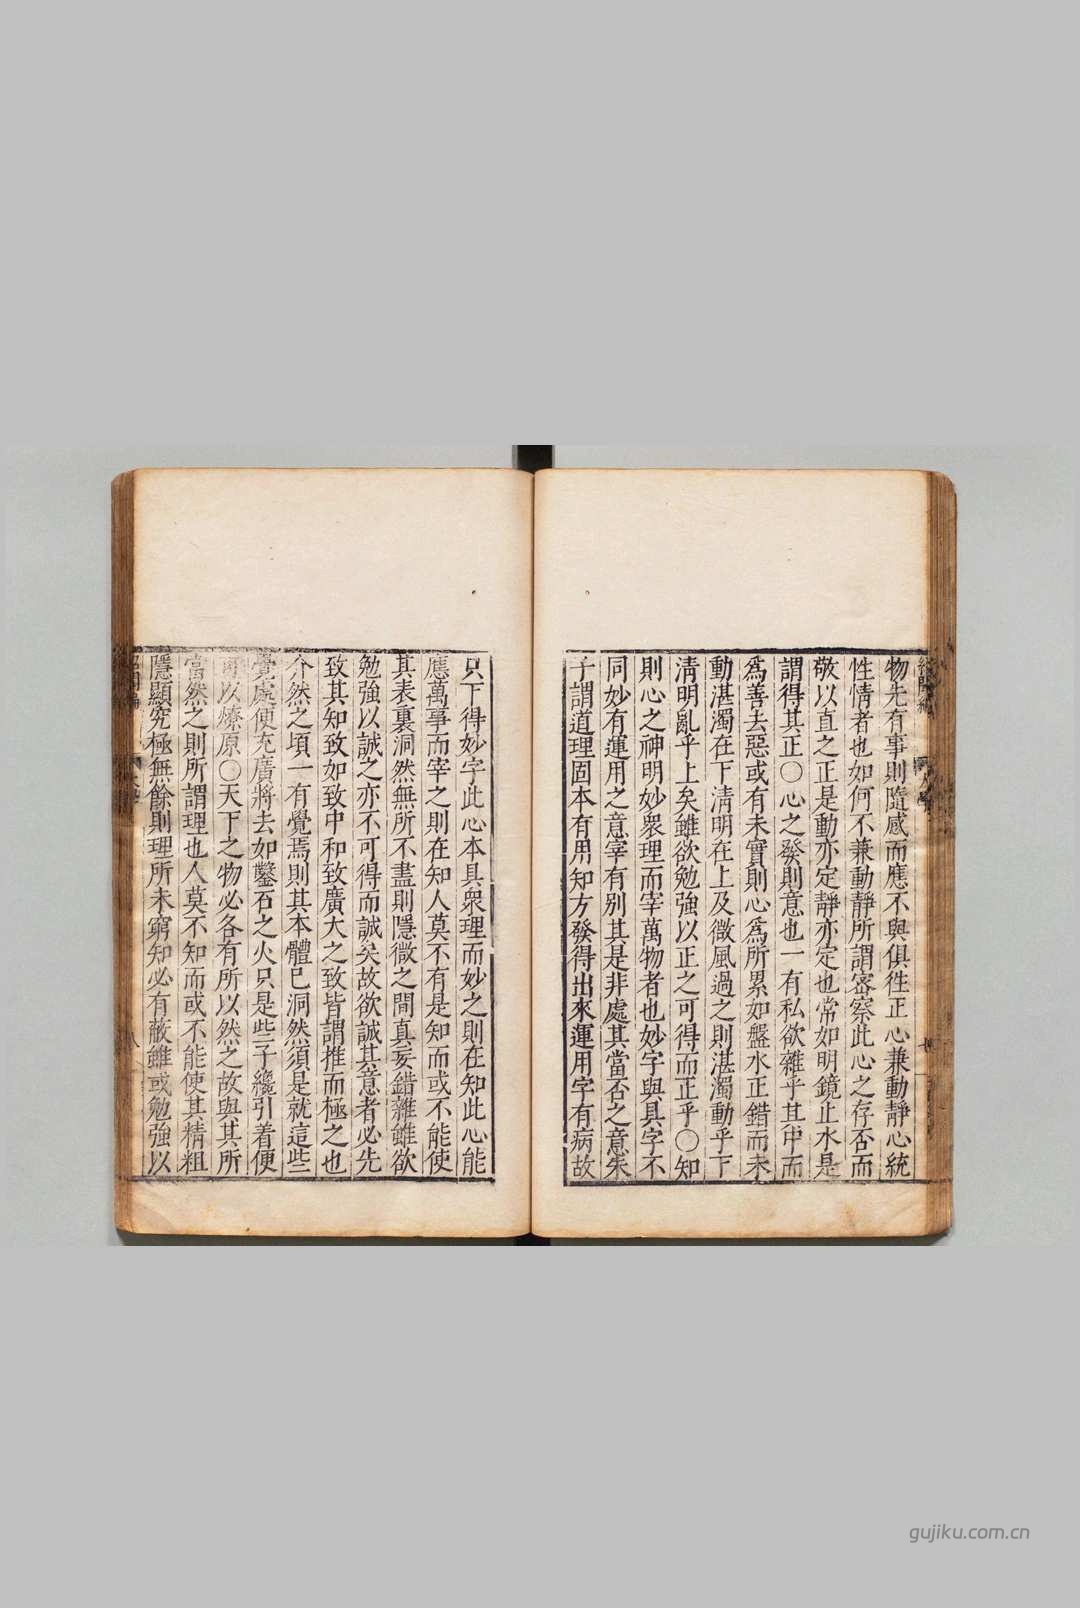 物先有事則隨感而應不與俱徃正心兼動靜心統
性情者也如何不兼動靜所謂密察此心之存否而
敬以直之正是動亦定靜亦定也常如明鏡止水是
謂得其正〇心之發則意也一有私欲雜乎其中而
爲善去惡或有未實則心爲所累如盤水正錯而未
動湛濁在下清明在上及微風過之則湛濁動乎下
清明亂乎上矣雖欲勉強以正之可得而正乎〇知
則心之神明妙衆理而宰萬物者也妙字與具字不
同妙有運用之意宰有别其是非處其當否之意朱
子謂道理固本有用知方發得出來運用字有病故
只下得妙字此心本具衆理而妙之則在知此心能
應萬事而宰之則在知人莫不有是知而或不能使
其表裏洞然無所不盡則隱微之間真妄錯雜雖欲
勉強以誠之亦不可得而誠矣故欲誠其意者必先
致其知致如致中和致廣大之致皆謂推而極之也
介然之頃一有覺焉則其本體已洞然須是就這些
覺處便充廣將去如鑿石之火只是些子纔引着便
可以燎原〇天下之物必各有所以然之故與其所
當然之則所謂理也人莫不知而或不能使其精粗
隱顯究極無餘則理所未窮知必有蔽雖或勉強以
gujiku.com.cn